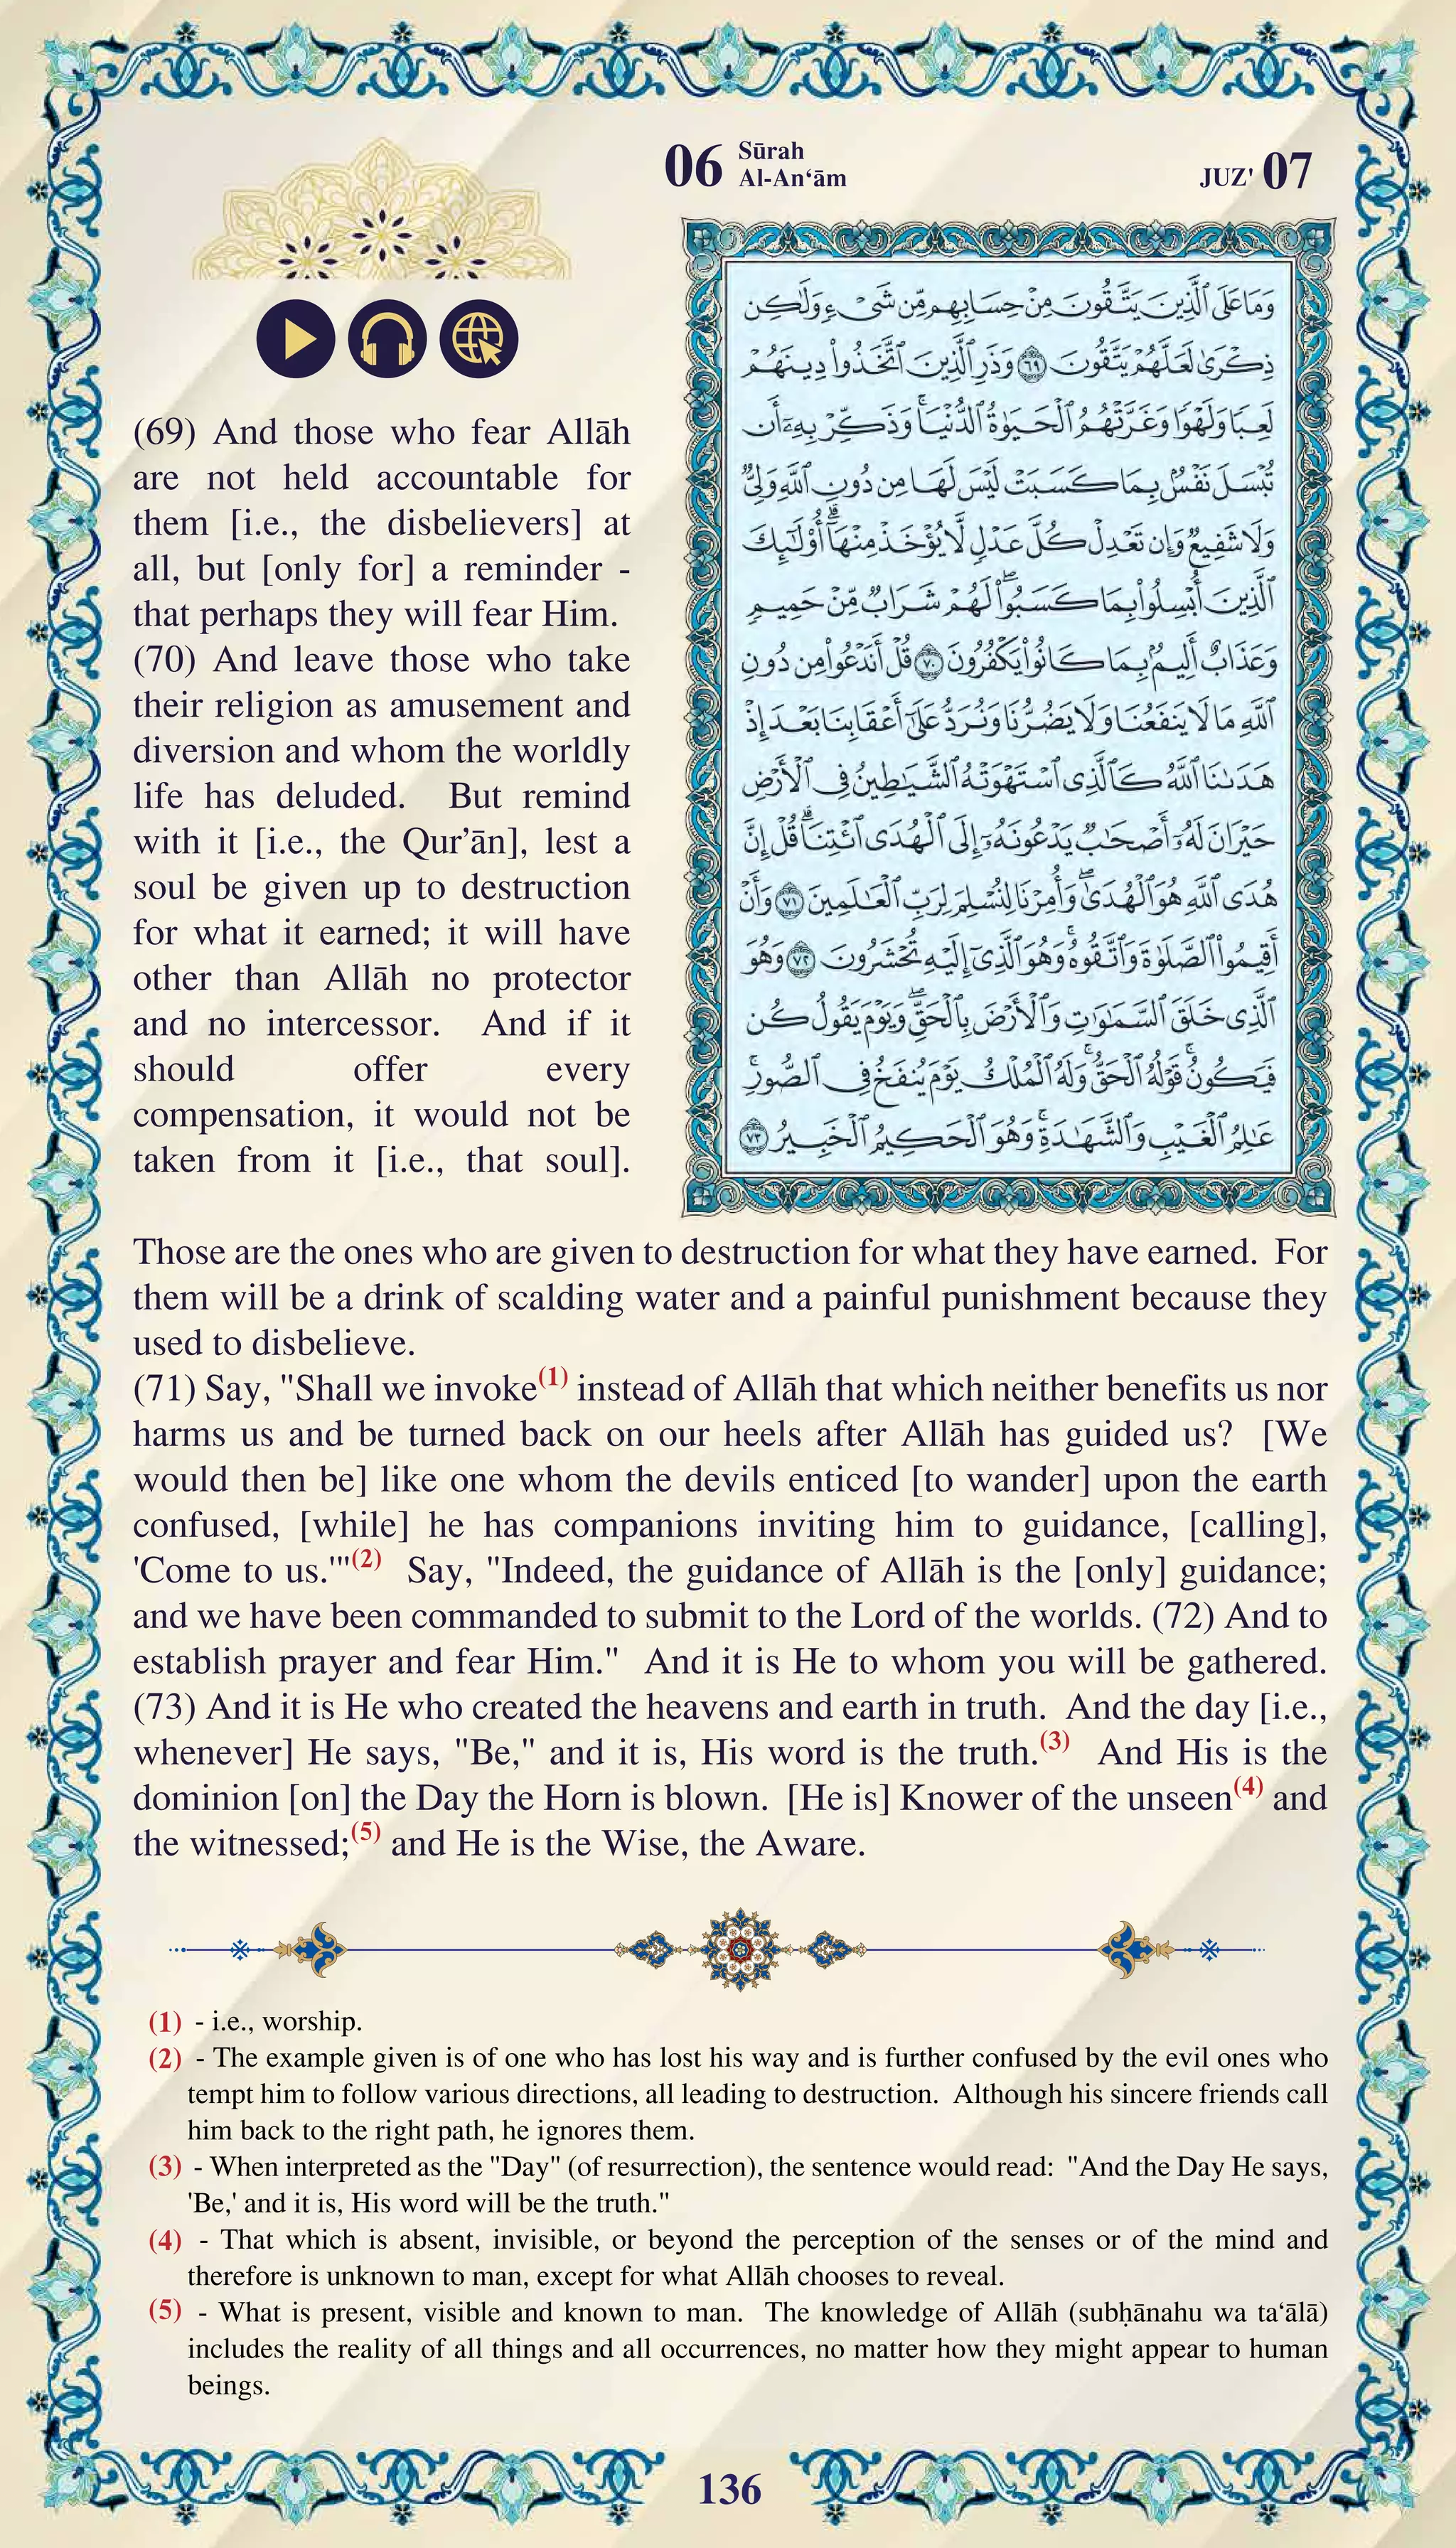 06 Sūrah
Al-An‘ām
JUZ' 07
وَمَا عَلَى ٱلَّذِينَ يَتَّقُونَ مِنْ حِسَابِهِم مِّن شَىْءٍ وَلَٰكِن
ذِكْرَىٰ لَعَلَّهُمْ يَتَّقُونَ ٦٩ وَذَرِ ٱلَّذِينَ ٱتَّخَذُوا۟ دِينَهُمْ
لَعِبًا وَلَهْوًا وَغَرَّتْهُمُ ٱلْحَيَوٰةُ ٱلدُّنْيَا ۚ وَذَكِّرْ بِهِۦٓ أَن
تُبْسَلَ نَفْسٌۢ بِمَا كَسَبَتْ لَيْسَ لَهَا مِن دُونِ ٱللَّهِ وَلِىٌّ
وَلَا شَفِيعٌ وَإِن تَعْدِلْ كُلَّ عَدْلٍ لَّا يُؤْخَذْ مِنْهَآ ۗ أُو۟لَٰٓئِكَ
ٱلَّذِينَ أُبْسِلُوا۟ بِمَا كَسَبُوا۟ ۖ لَهُمْ شَرَابٌ مِّنْ حَمِيمٍ
وَعَذَابٌ أَلِيمٌۢ بِمَا كَانُوا۟ يَكْفُرُونَ ٧٠ قُلْ أَنَدْعُوا۟ مِن دُونِ
ٱللَّهِ مَا لَا يَنفَعُنَا وَلَا يَضُرُّنَا وَنُرَدُّ عَلَىٰٓ أَعْقَابِنَا بَعْدَ إِذْ
هَدَىٰنَا ٱللَّهُ كَٱلَّذِى ٱسْتَهْوَتْهُ ٱلشَّيَٰطِينُ فِى ٱلْأَرْضِ
حَيْرَانَ لَهُۥٓ أَصْحَٰبٌ يَدْعُونَهُۥٓ إِلَى ٱلْهُدَى ٱئْتِنَا ۗ قُلْ إِنَّ
هُدَى ٱللَّهِ هُوَ ٱلْهُدَىٰ ۖ وَأُمِرْنَا لِنُسْلِمَ لِرَبِّ ٱلْعَٰلَمِينَ ٧١ وَأَنْ
أَقِيمُوا۟ ٱلصَّلَوٰةَ وَٱتَّقُوهُ ۚ وَهُوَ ٱلَّذِىٓ إِلَيْهِ تُحْشَرُونَ ٧٢ وَهُوَ
ٱلَّذِى خَلَقَ ٱلسَّمَٰوَٰتِ وَٱلْأَرْضَ بِٱلْحَقِّ ۖ وَيَوْمَ يَقُولُ كُن
فَيَكُونُ ۚ قَوْلُهُ ٱلْحَقُّ ۚ وَلَهُ ٱلْمُلْكُ يَوْمَ يُنفَخُ فِى ٱلصُّورِ ۚ
عَٰلِمُ ٱلْغَيْبِ وَٱلشَّهَٰدَةِ ۚ وَهُوَ ٱلْحَكِيمُ ٱلْخَبِيرُ ٧٣
(69) And those who fear Allāh
are not held accountable for
them [i.e., the disbelievers] at
all, but [only for] a reminder -
that perhaps they will fear Him.
(70) And leave those who take
their religion as amusement and
diversion and whom the worldly
life has deluded. But remind
with it [i.e., the Qur’ān], lest a
soul be given up to destruction
for what it earned; it will have
other than Allāh no protector
and no intercessor. And if it
should offer every
compensation, it would not be
taken from it [i.e., that soul].
Those are the ones who are given to destruction for what they have earned. For
them will be a drink of scalding water and a painful punishment because they
used to disbelieve.
(71) Say, "Shall we invoke(1) instead of Allāh that which neither benefits us nor
harms us and be turned back on our heels after Allāh has guided us? [We
would then be] like one whom the devils enticed [to wander] upon the earth
confused, [while] he has companions inviting him to guidance, [calling],
'Come to us.'"(2) Say, "Indeed, the guidance of Allāh is the [only] guidance;
and we have been commanded to submit to the Lord of the worlds. (72) And to
establish prayer and fear Him." And it is He to whom you will be gathered.
(73) And it is He who created the heavens and earth in truth. And the day [i.e.,
whenever] He says, "Be," and it is, His word is the truth.(3) And His is the
dominion [on] the Day the Horn is blown. [He is] Knower of the unseen(4) and
the witnessed;(5) and He is the Wise, the Aware.
(1) - i.e., worship.
(2) - The example given is of one who has lost his way and is further confused by the evil ones who
tempt him to follow various directions, all leading to destruction. Although his sincere friends call
him back to the right path, he ignores them.
(3) - When interpreted as the "Day" (of resurrection), the sentence would read: "And the Day He says,
'Be,' and it is, His word will be the truth."
(4) - That which is absent, invisible, or beyond the perception of the senses or of the mind and
therefore is unknown to man, except for what Allāh chooses to reveal.
(5) - What is present, visible and known to man. The knowledge of Allāh (subḥānahu wa ta‘ālā)
includes the reality of all things and all occurrences, no matter how they might appear to human
beings.
136